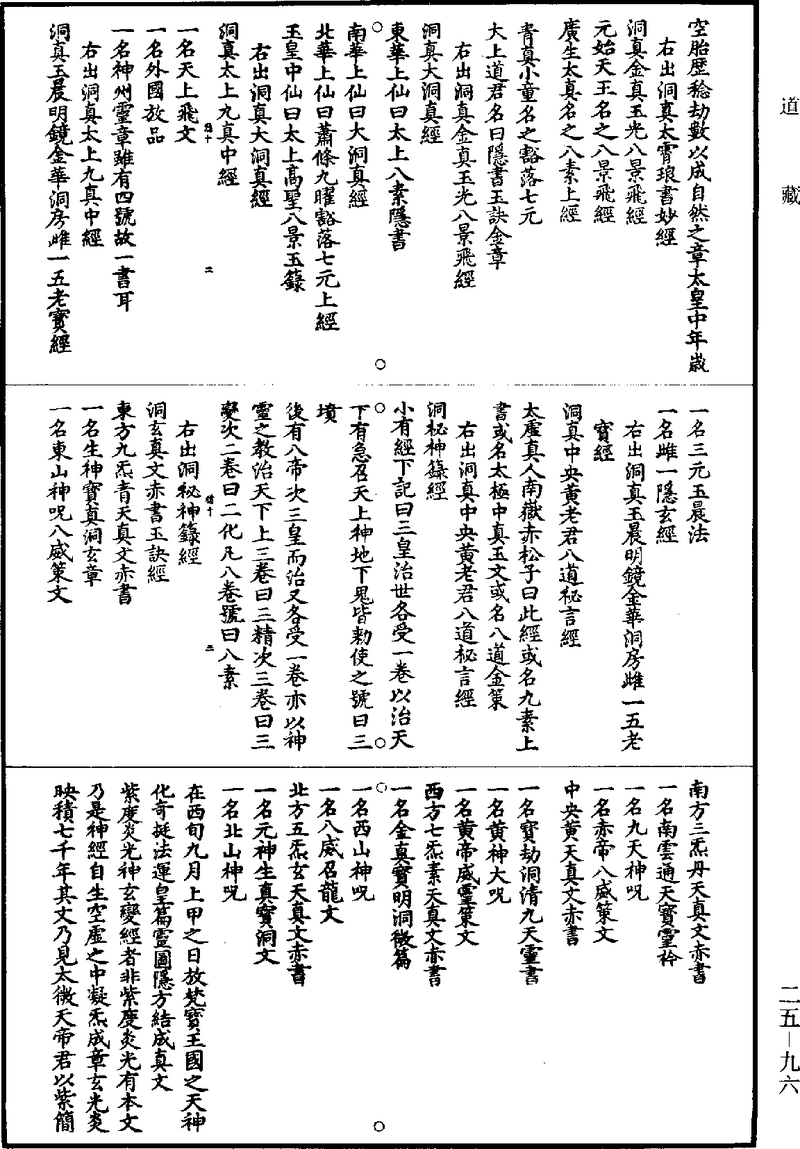 道藏
空胎歷稔劫數以成自然之章太皇中年歲
右出洞真太霄琅書妙經
洞真金真玉光八景飛經
元始天王名之八景飛經
廣生太真名之八素上經
青真小童名之豁落七元
大上道君名曰隱書玉訣金章
右出洞真金真玉光八景飛經
洞真大洞真經
東華上仙曰太上八素隱書
南華上仙曰大洞真經
北華上仙曰蕭條九曜豁落七元上經
玉皇中仙曰太上高聖八景玉籙
右出洞真大洞真經
洞真太上九真中經
一名天上飛文
一名外國放品
一名神州靈章雖有四號故一書耳
右出洞真太上九真中經
洞真玉晨明鏡金華洞房雌一五老寶經
一名三元玉晨法
一名雌一隱玄經
右出洞真玉晨明鏡金華洞房雌一五老
寶經
洞真中央黃老君八道秘言經
太虛真人南嶽赤松子曰此經或名九素上
書或名太極中真玉文或名八道金策
右出洞真中央黃老君八道秘言經
洞秘神籙經
小有經下記曰三皇治世各受一卷以治天
下有急召天上神地下鬼皆勑使之號曰三
墳
後有八帝次三皇而治又各受一卷亦以神
靈之教治天下上三卷曰三精次三卷曰三
變次二卷曰二化凡八卷號曰八素
右出洞秘神籙經
洞玄真文赤書玉訣經
東方九炁青天真文赤書
一名生神寶真洞玄章
一名東山神呪八威策文
南方三炁丹天真文赤書
一名南雲通天寶靈衿
一名九天神呪
一名赤帝八威策文
中央黃天真文赤書
一名寶劫洞清九天靈書
一名黃神大呪
一名黃帝威靈策文
西方七炁素天真文赤書
一名金真寶明洞微篇
一名西山神呪
一名八威召龍文
北方五炁玄天真文赤書
一名元神生真寶洞文
一名北山神呪
在西旬九月上甲之日放梵寶王國之天神
化奇挺法運皇篇靈圖隱方結成真文
紫度炎光神玄變經者非紫度炎光有本文
乃是神經自生空虛之中凝炁成章玄光炎
映積七千年其文乃見太微天帝君以紫簡
二五—九六